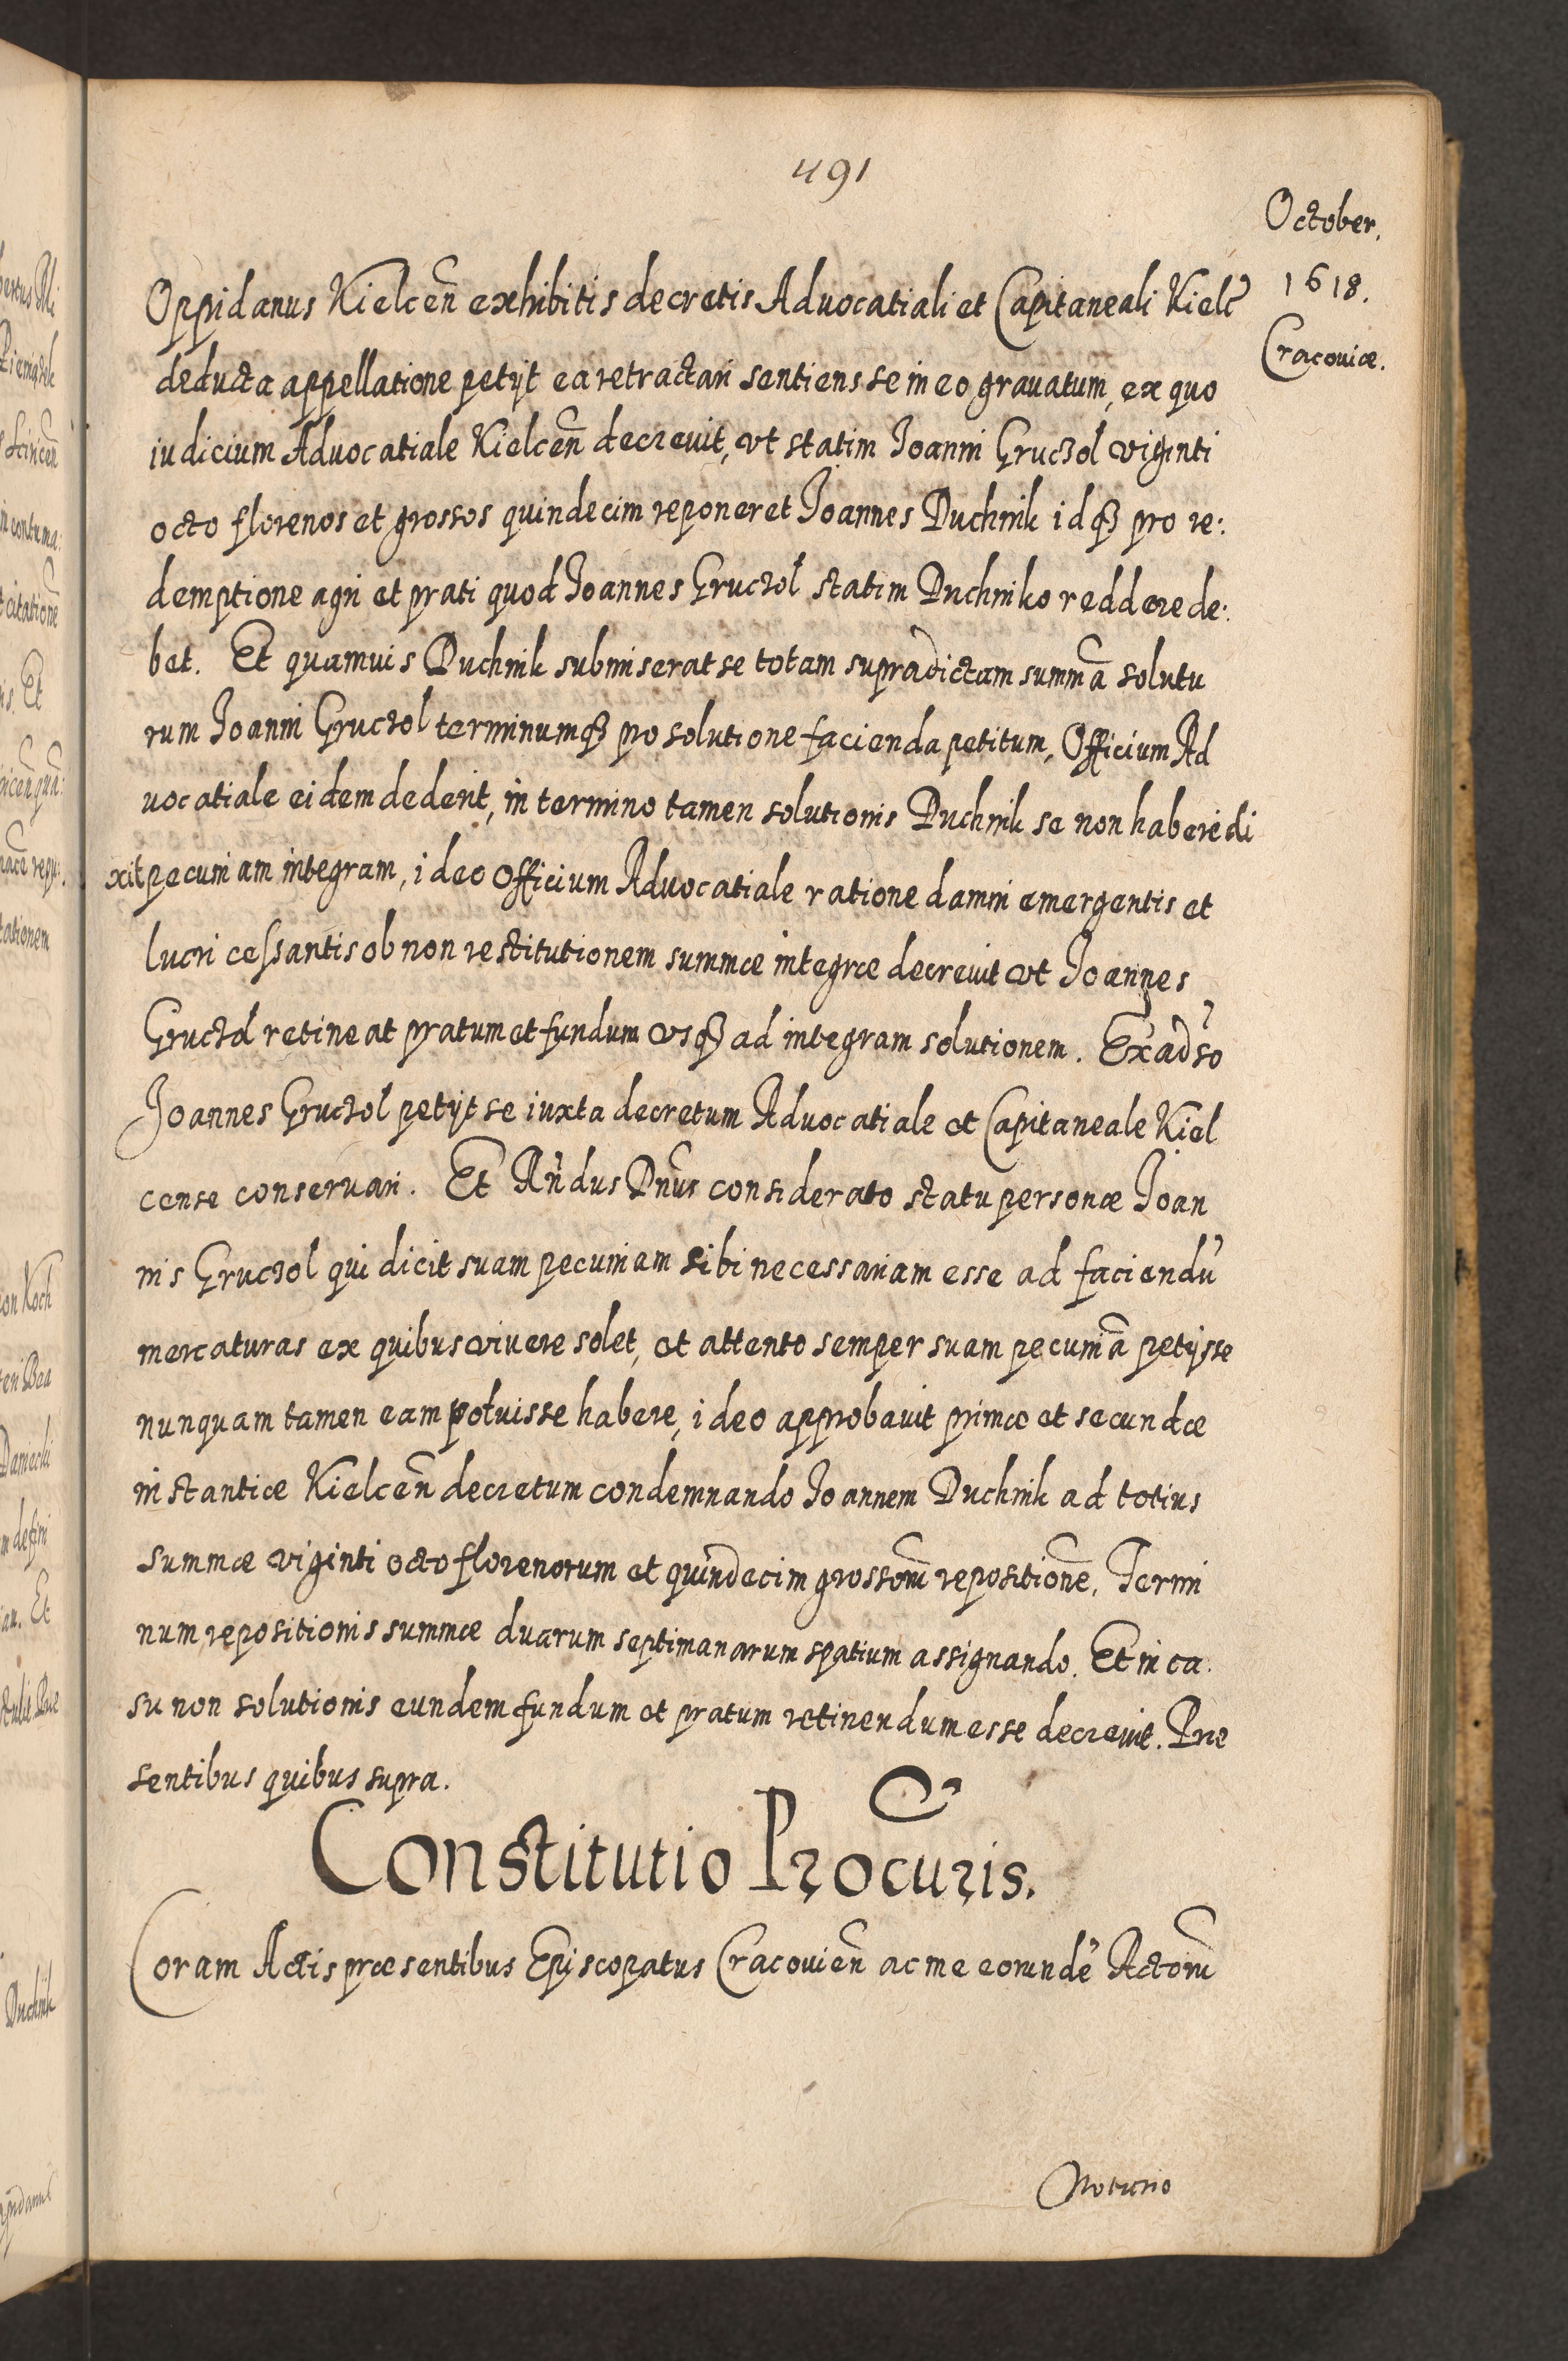 491
October.
1618.
Cracouiæ.
Oppidanus Kielceñ exhibitis decretis Aduocatiali et Capitaneali Kielc̃
deducta appellatione petijt ea retractari sentiens se in eo grauatum, ex quo
iudicium Aduocatiale Kielceñ decreuit, vt statim Joanni Gruczol viginti
octo florenos et grossos quindecim reponeret Joannes Duchnik idqȝ pro re:
demptione agri et prati quod Joannes Gruczol statim Duchniko reddere de:
bet. Et quamuis Duchnik submiserat se totam supradictam summã solutu
rum Joanni Gruczol terminumqȝ pro solutione facienda petitum, Officium Ad
uocatiale eidem dederit, in termino tamen solutionis Duchnik se non habere di
xit pecuniam integram, ideo Officium Aduocatiale ratione damni emergentis et
lucri cessantis ob non restitutionem summæ integræ decreuit vt Joannes
Gruczol retineat pratum et fundum vsqȝ ad integram solutionem. Ex adṽso
Joannes Gruczol petijt se iuxta decretum Aduocatiale et Capitaneale Kiel
cense conseruari. Et Rñdus Dñus considerato statu personæ Joan
nis Gruczol qui dicit suam pecuniam sibi necessariam esse ad faciendũ
mercaturas ex quibus viuere solet, et attento semper suam pecuniã petijsse
nunquam tamen eam potuisse habere, ideo approbauit primæ et secundæ
instantiæ Kielceñ decretum condemnando Joannem Duchnik ad totius
summæ viginti octo florenorum et quindecim grossorũ repositionẽ. Termi
num repositionis summæ duarum septimanarum spatium assignando. Et in ca
su non solutionis eundem fundum et pratum retinendum esse decreuit. Pre
sentibus quibus supra.
Constitutio Procuris.
Coram Actis præsentibus Episcopatus Cracouieñ ac me eorundẽ Actorũ
Notario